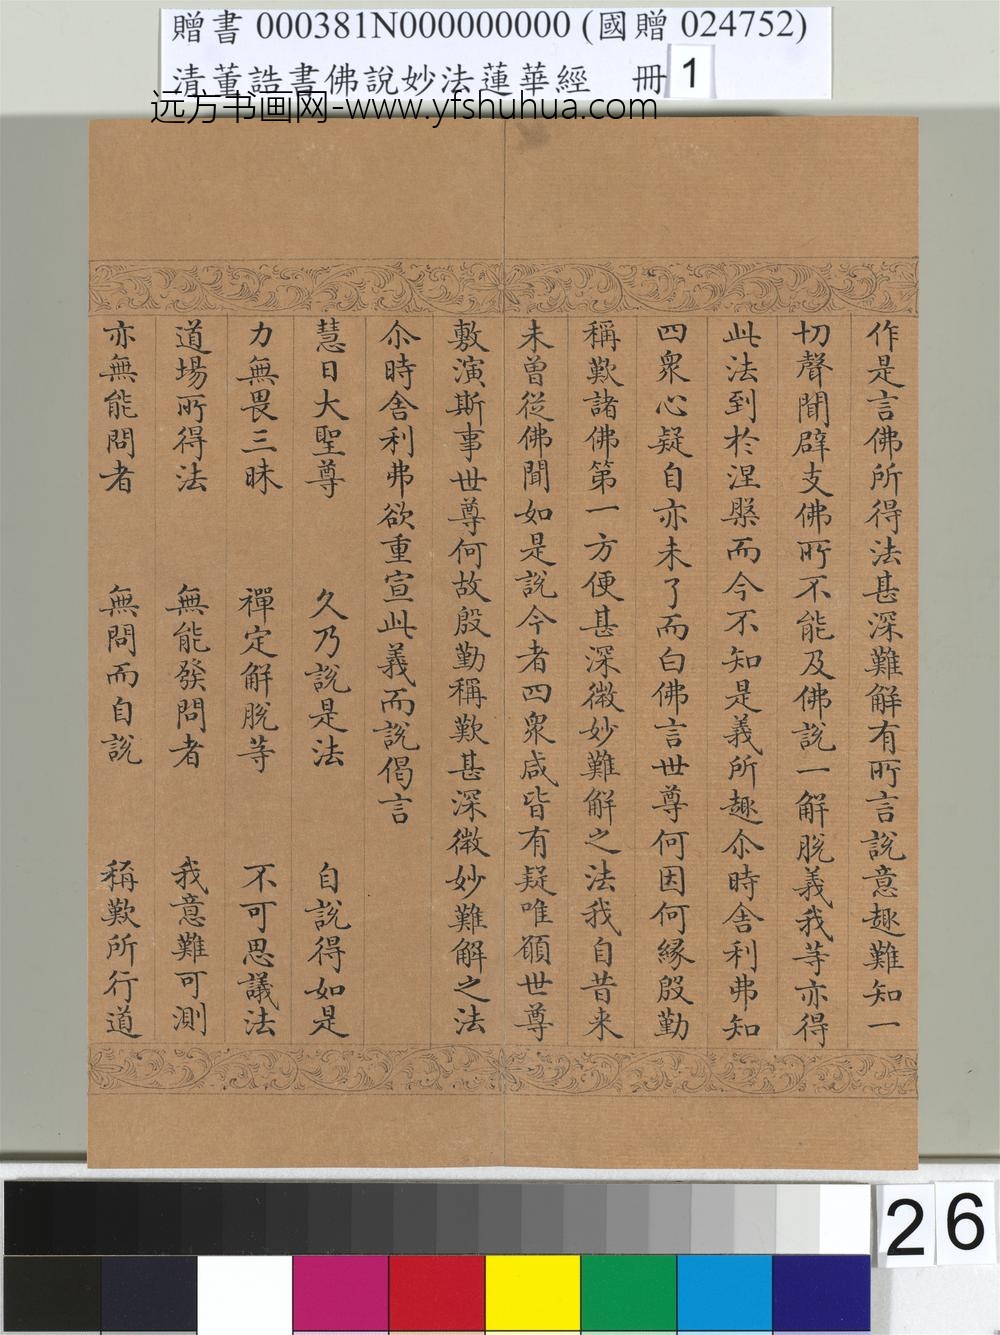 贈書 000381N000000000 (國贈 024752)
清董誥書佛說妙法蓮華經 冊 1
远方书画网-www.yfshuhua.com
作是言佛所得法甚深難解有所言說意趣難知一
切聲聞辟支佛所不能及佛說一解脫義我等亦得
此法到於涅槃而今不知是義所趣尒時舍利弗知
四衆心疑自亦未了而白佛言世尊何因何緣殷勤
稱歎諸佛第一方便甚深微妙難解之法我自昔来
未曾從佛聞如是說今者四衆咸皆有疑唯願世尊
敷演斯事世尊何故殷勤稱歎甚深微妙難解之法
尒時舍利弗欲重宣此義而說偈言
慧日大聖尊 久乃說是法 自說得如是
力無畏三昧 禪定解脫等 不可思議法
道場所得法 無能發問者 我意難可測
亦無能問者 無問而自說 稱歎所行道
26